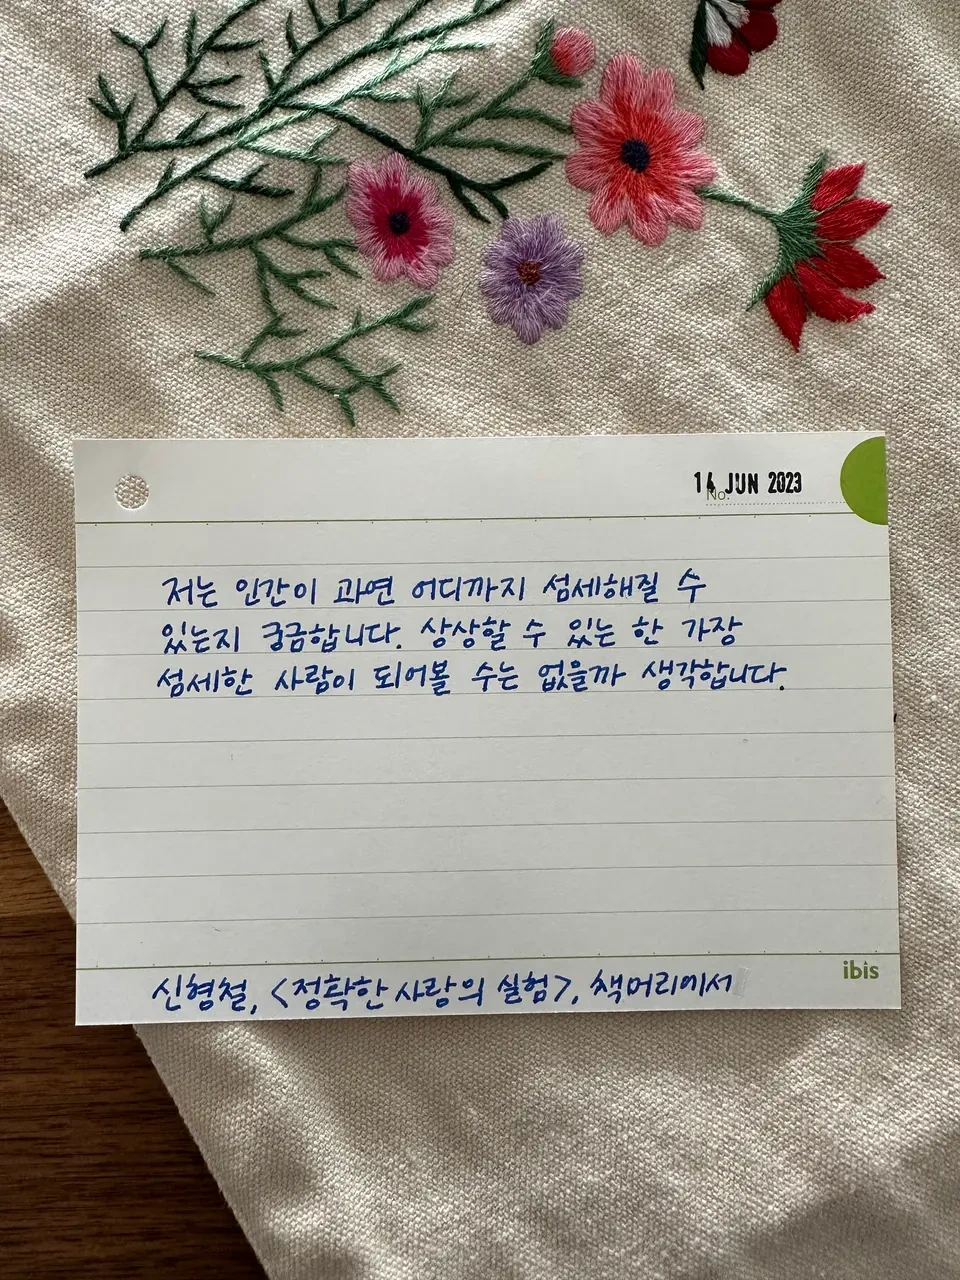 14 JUN 2023
No.
저는 인간이 과연 어디까지 섬세해질 수
있는지 궁금합니다. 상상할 수 있는 한 가장
섬세한 사람이 되어볼 수는 없을까 생각합니다.
ibis
신형철, <정확한 사랑의 실험>, 책머리에서